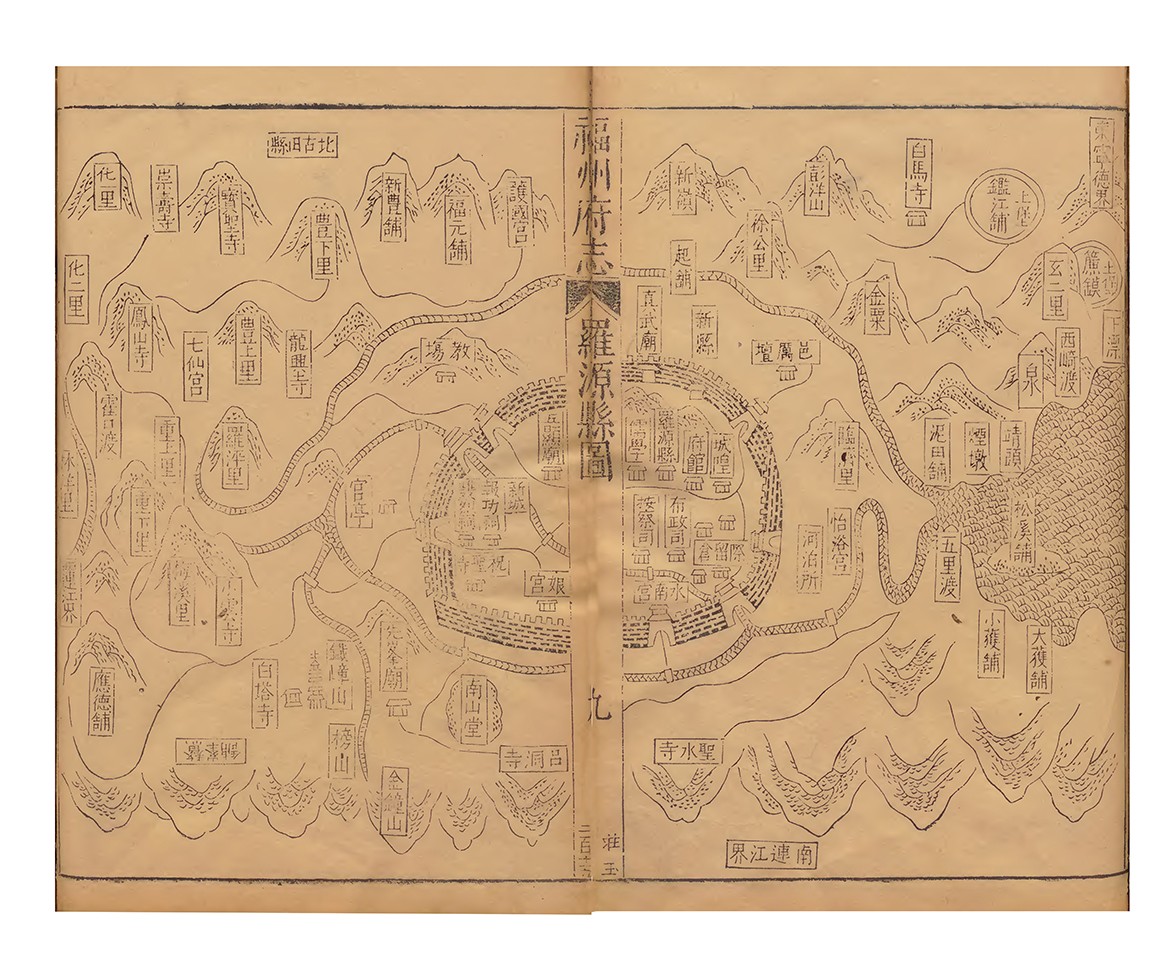 福州府志
羅源縣圖
九
莊玉
東寧德界
鑑江舖
白馬寺
彭洋山
新嶺
徐公里
起舖
玄二里
西﨑渡
金粟
真武廟
新縣
邑厲壇
靖頭
煙墩
泥田舖
臨濟里
松溪舖
五里渡
怡浴宮
河泊所
小獲舖
大獲舖
儒學
羅源縣
府館
城隍
按察司
布政司
際留倉
水南宮
聖水寺
南連江界
北古田縣
護國宮
福元舖
新豊舖
豊下里
寶聖寺
崇壽寺
化里
化二里
鳳山寺
七仙宮
豊上里
龍興寺
教塲
霍口渡
重上里
羅平里
重下里
官亭
新城
報功祠
祝聖寺
娘宮
梅溪里
連江界
應德舖
白塔寺
鐵嶂山
南山堂
榜山
金鐘山
呂洞寺